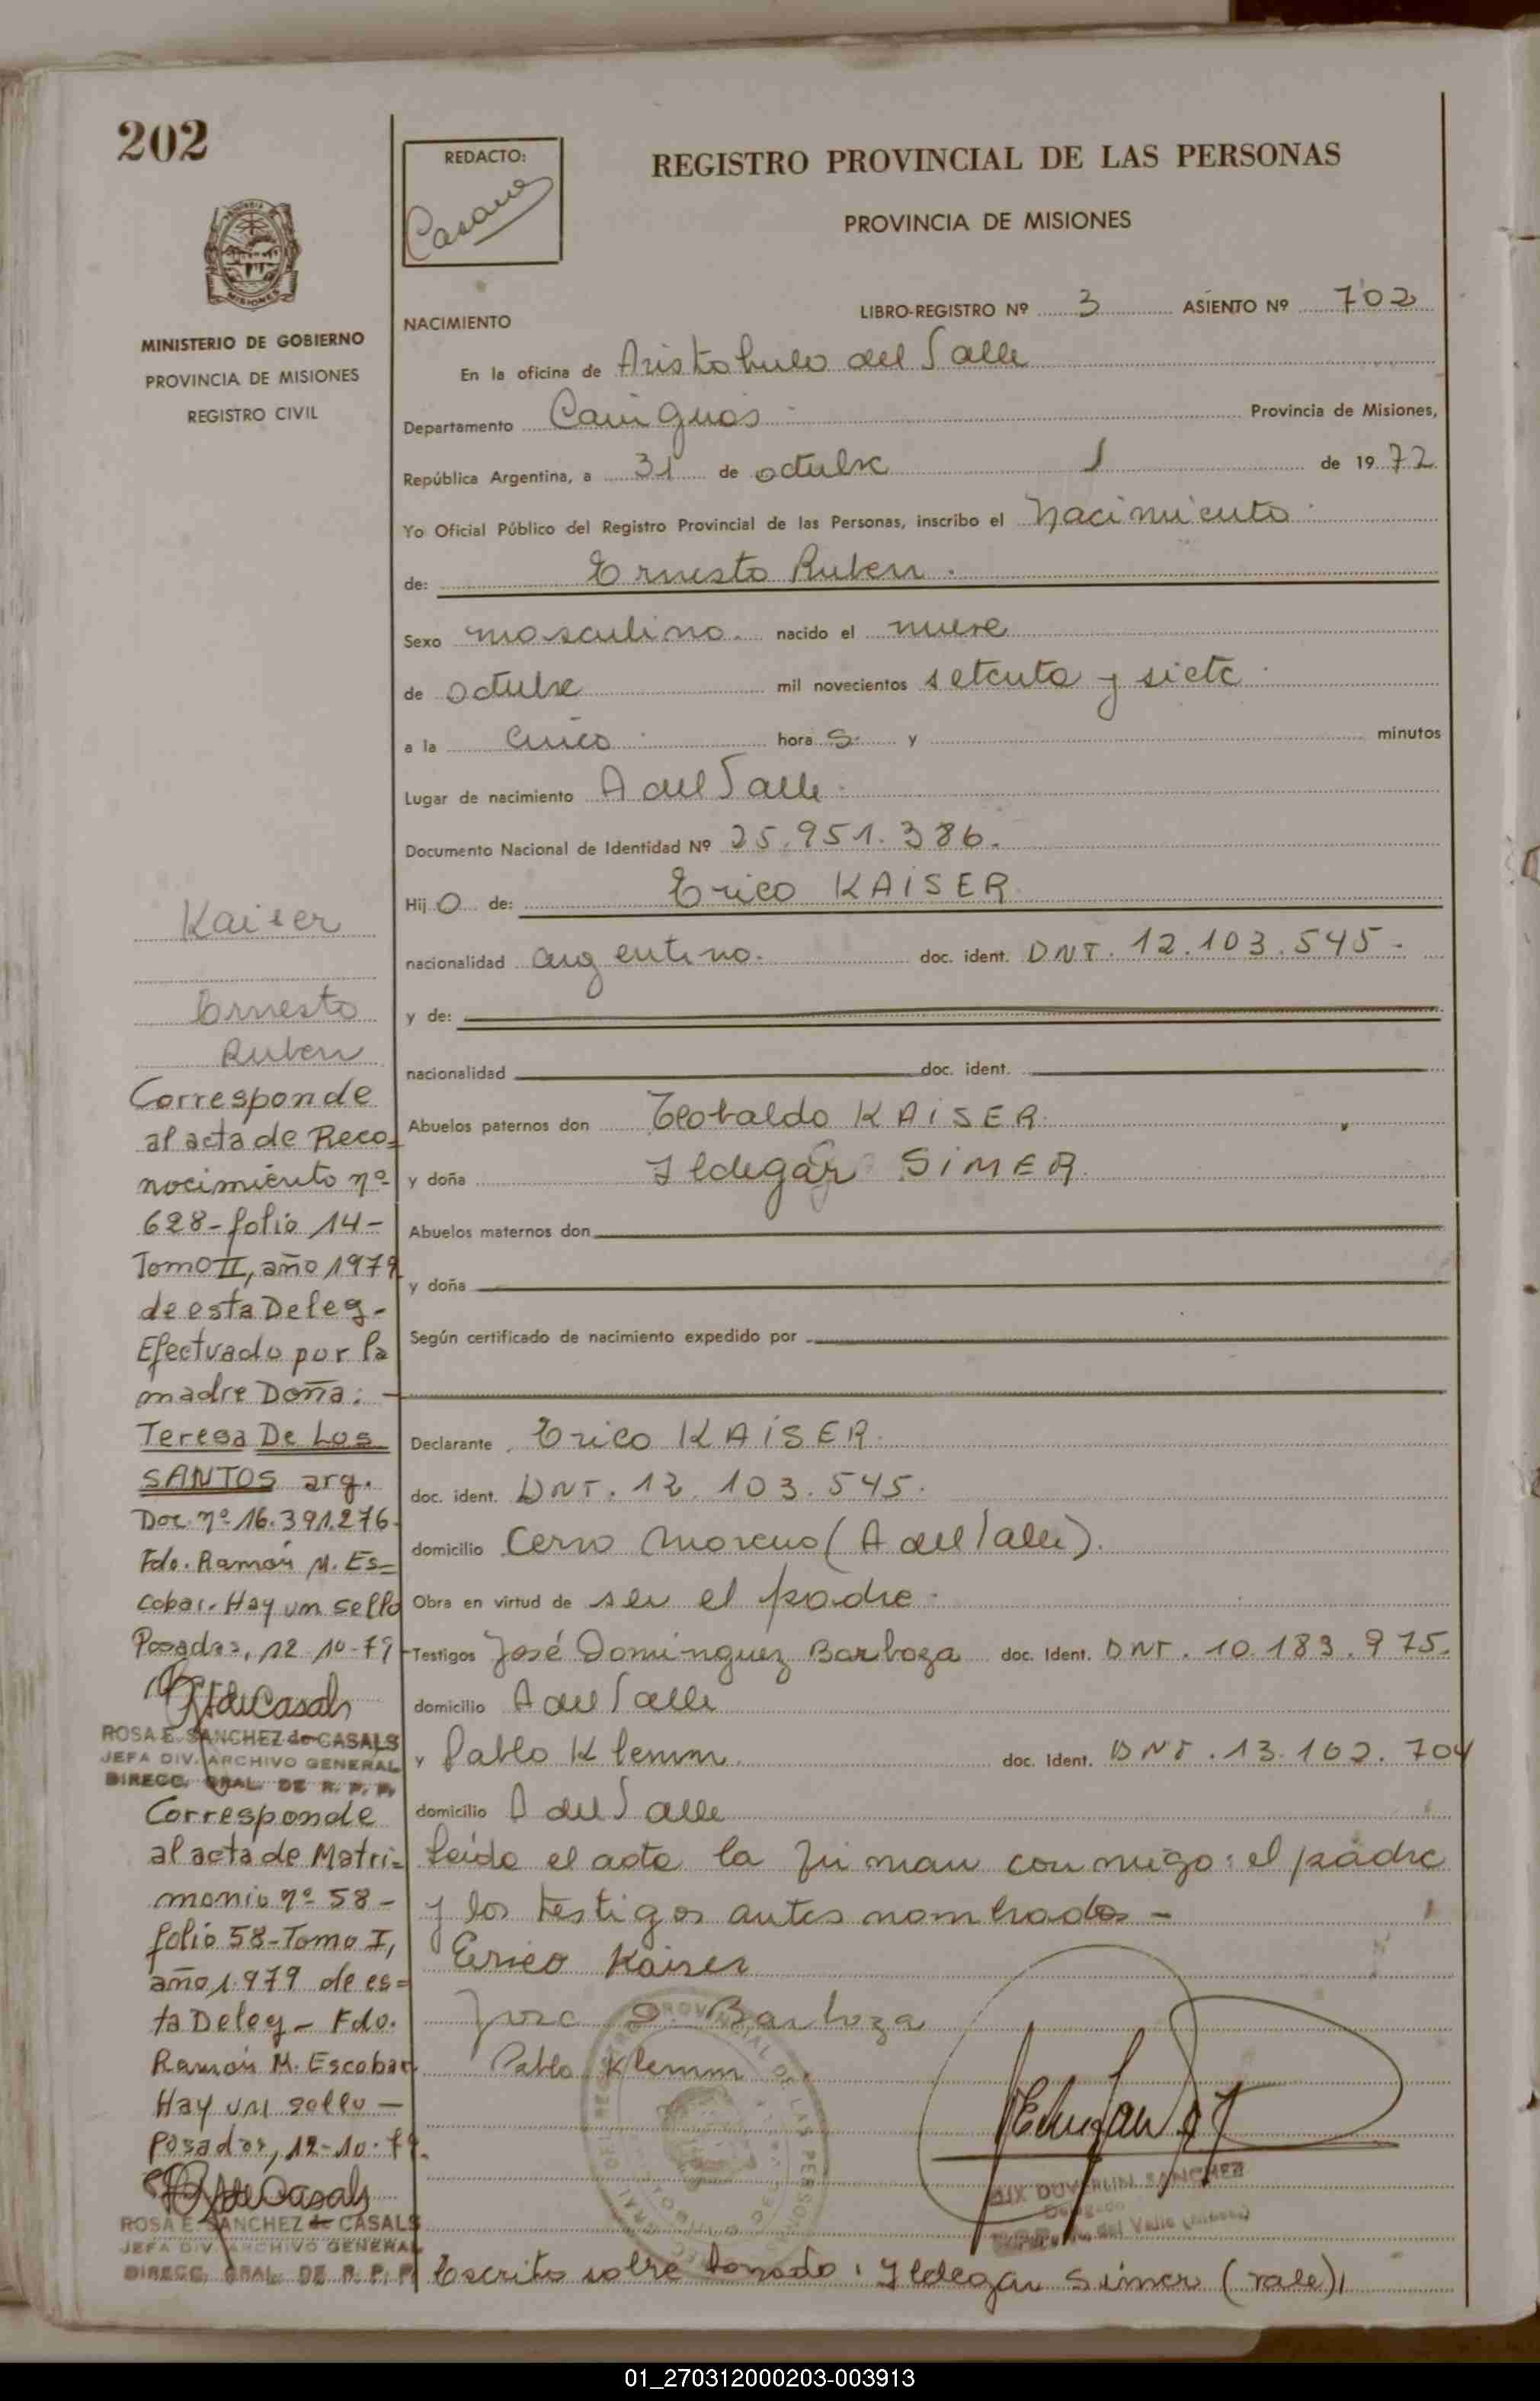 202
MINISTERIO DE GOBIERNO
PROVINCIA DE MISIONES
REGISTRO CIVIL
REDACTO:
REGISTRO PROVINCIAL DE LAS PERSONAS
PROVINCIA DE MISIONES
NACIMIENTO
LIBRO-REGISTRO Nº 3 ASIENTO Nº 702
En la oficina de Aristobulo del Valle
Departamento Cainguas Provincia de Misiones,
República Argentina, a 31 de octubre de 1972
Yo Oficial Público del Registro Provincial de las Personas, inscribo el Nacimiento
de: Ernesto Ruben.
Sexo masculino. nacido el nueve
de octubre mil novecientos setenta y siete
a la cinco hora s y minutos
Lugar de nacimiento A del Valle
Documento Nacional de Identidad Nº 25.951.386.
Hij o de: Erico KAISER
nacionalidad argentino. doc. ident. DNI. 12.103.545.
y de:
nacionalidad doc. ident.
Abuelos paternos don Teobaldo KAISER
y doña Ildegar SIMER
Abuelos maternos don
y doña
Según certificado de nacimiento expedido por
Declarante Erico KAISER
doc. ident. DNI. 12.103.545.
domicilio Cerro Moreno (A del Valle).
Obra en virtud de ser el padre
Testigos José Dominguez Barboza doc. Ident. DNI. 10.183.975.
domicilio A del Valle
y Pablo Klemm doc. Ident. DNI. 13.162.704
domicilio A del Valle
Leída el acta la firman conmigo: el padre
y los testigos antes nombrados -
Erico Kaiser
Jose D. Barboza
Pablo Klemm
Escrito sobre borrado: Ildegar Simer (vale)
Kaiser
Ernesto
Ruben
Corresponde
al acta de Reco-
nocimiento nº
628-folio 14-
Tomo II, año 1979
de esta Deleg-
Efectuado por la
madre Doña:
Teresa De Los
SANTOS arg.
Doc. nº 16.391.276-
Fdo. Ramón M. Es-
cobar. Hay un sello
Posadas, 12-10-79
ROSA E. SANCHEZ de CASALS
JEFA DIV. ARCHIVO GENERAL
DIRECC. GRAL. DE R. P. P.
Corresponde
al acta de Matri-
monio nº 58-
folio 58-Tomo I,
año 1.979 de es-
ta Deleg- Fdo.
Ramón M. Escobar
Hay un sello-
Posadas, 12-10-79.
ROSA E. SANCHEZ de CASALS
JEFA DIV. ARCHIVO GENERAL
DIRECC. GRAL. DE R. P. P.
01_270312000203-003913